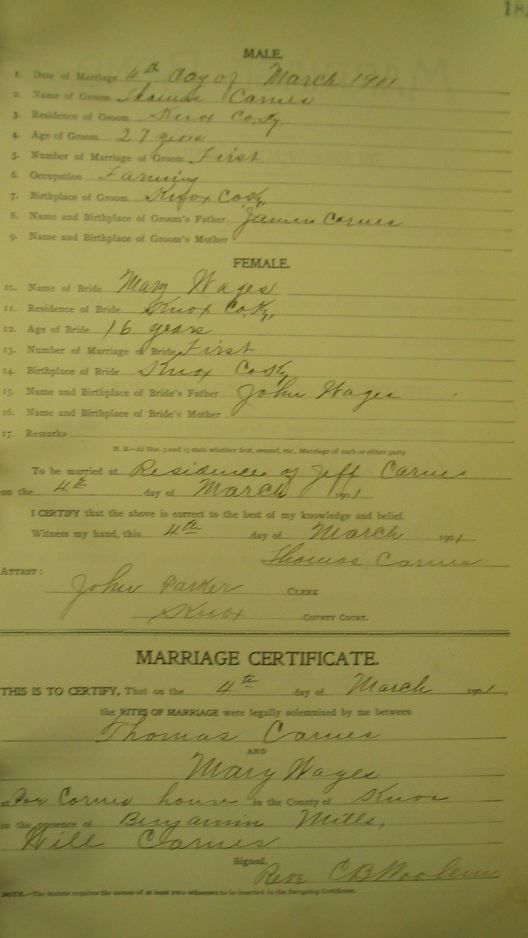 18
MALE.
1. Date of Marriage 4th day of March 1901
2. Name of Groom Thomas Carnes
3. Residence of Groom Knox Co, Ky,
4. Age of Groom 27 years
5. Number of Marriage of Groom First
6. Occupation Farming
7. Birthplace of Groom Knox Co Ky,
8. Name and Birthplace of Groom's Father James Carnes
9. Name and Birthplace of Groom's Mother
FEMALE.
10. Name of Bride Mary Wages
11. Residence of Bride Knox Co, Ky,
12. Age of Bride 16 years
13. Number of Marriage of Bride First
14. Birthplace of Bride Knox Co Ky
15. Name and Birthplace of Bride's Father John Wages
16. Name and Birthplace of Bride's Mother
17. Remarks
N. B.—At Nos. 5 and 13 state whether first, second, etc., Marriage of each or either party
To be married at Residence of Jeff Carnes
on the 4th day of March 1901
I CERTIFY that the above is correct to the best of my knowledge and belief.
Witness my hand, this 4th day of March 1901
Thomas Carnes
ATTEST:
John Parker CLERK
Knox COUNTY COURT.
MARRIAGE CERTIFICATE.
THIS IS TO CERTIFY, That on the 4th day of March 1901,
the RITES OF MARRIAGE were legally solemnized by me between
Thomas Carnes
AND
Mary Wages
at Carnes house in the County of Knox
in the presence of Benjamin Mills,
Will Carnes
Signed, Rev C B
NOTE.—The Statute requires the names of at least two witnesses to be inserted in the foregoing Certificate.